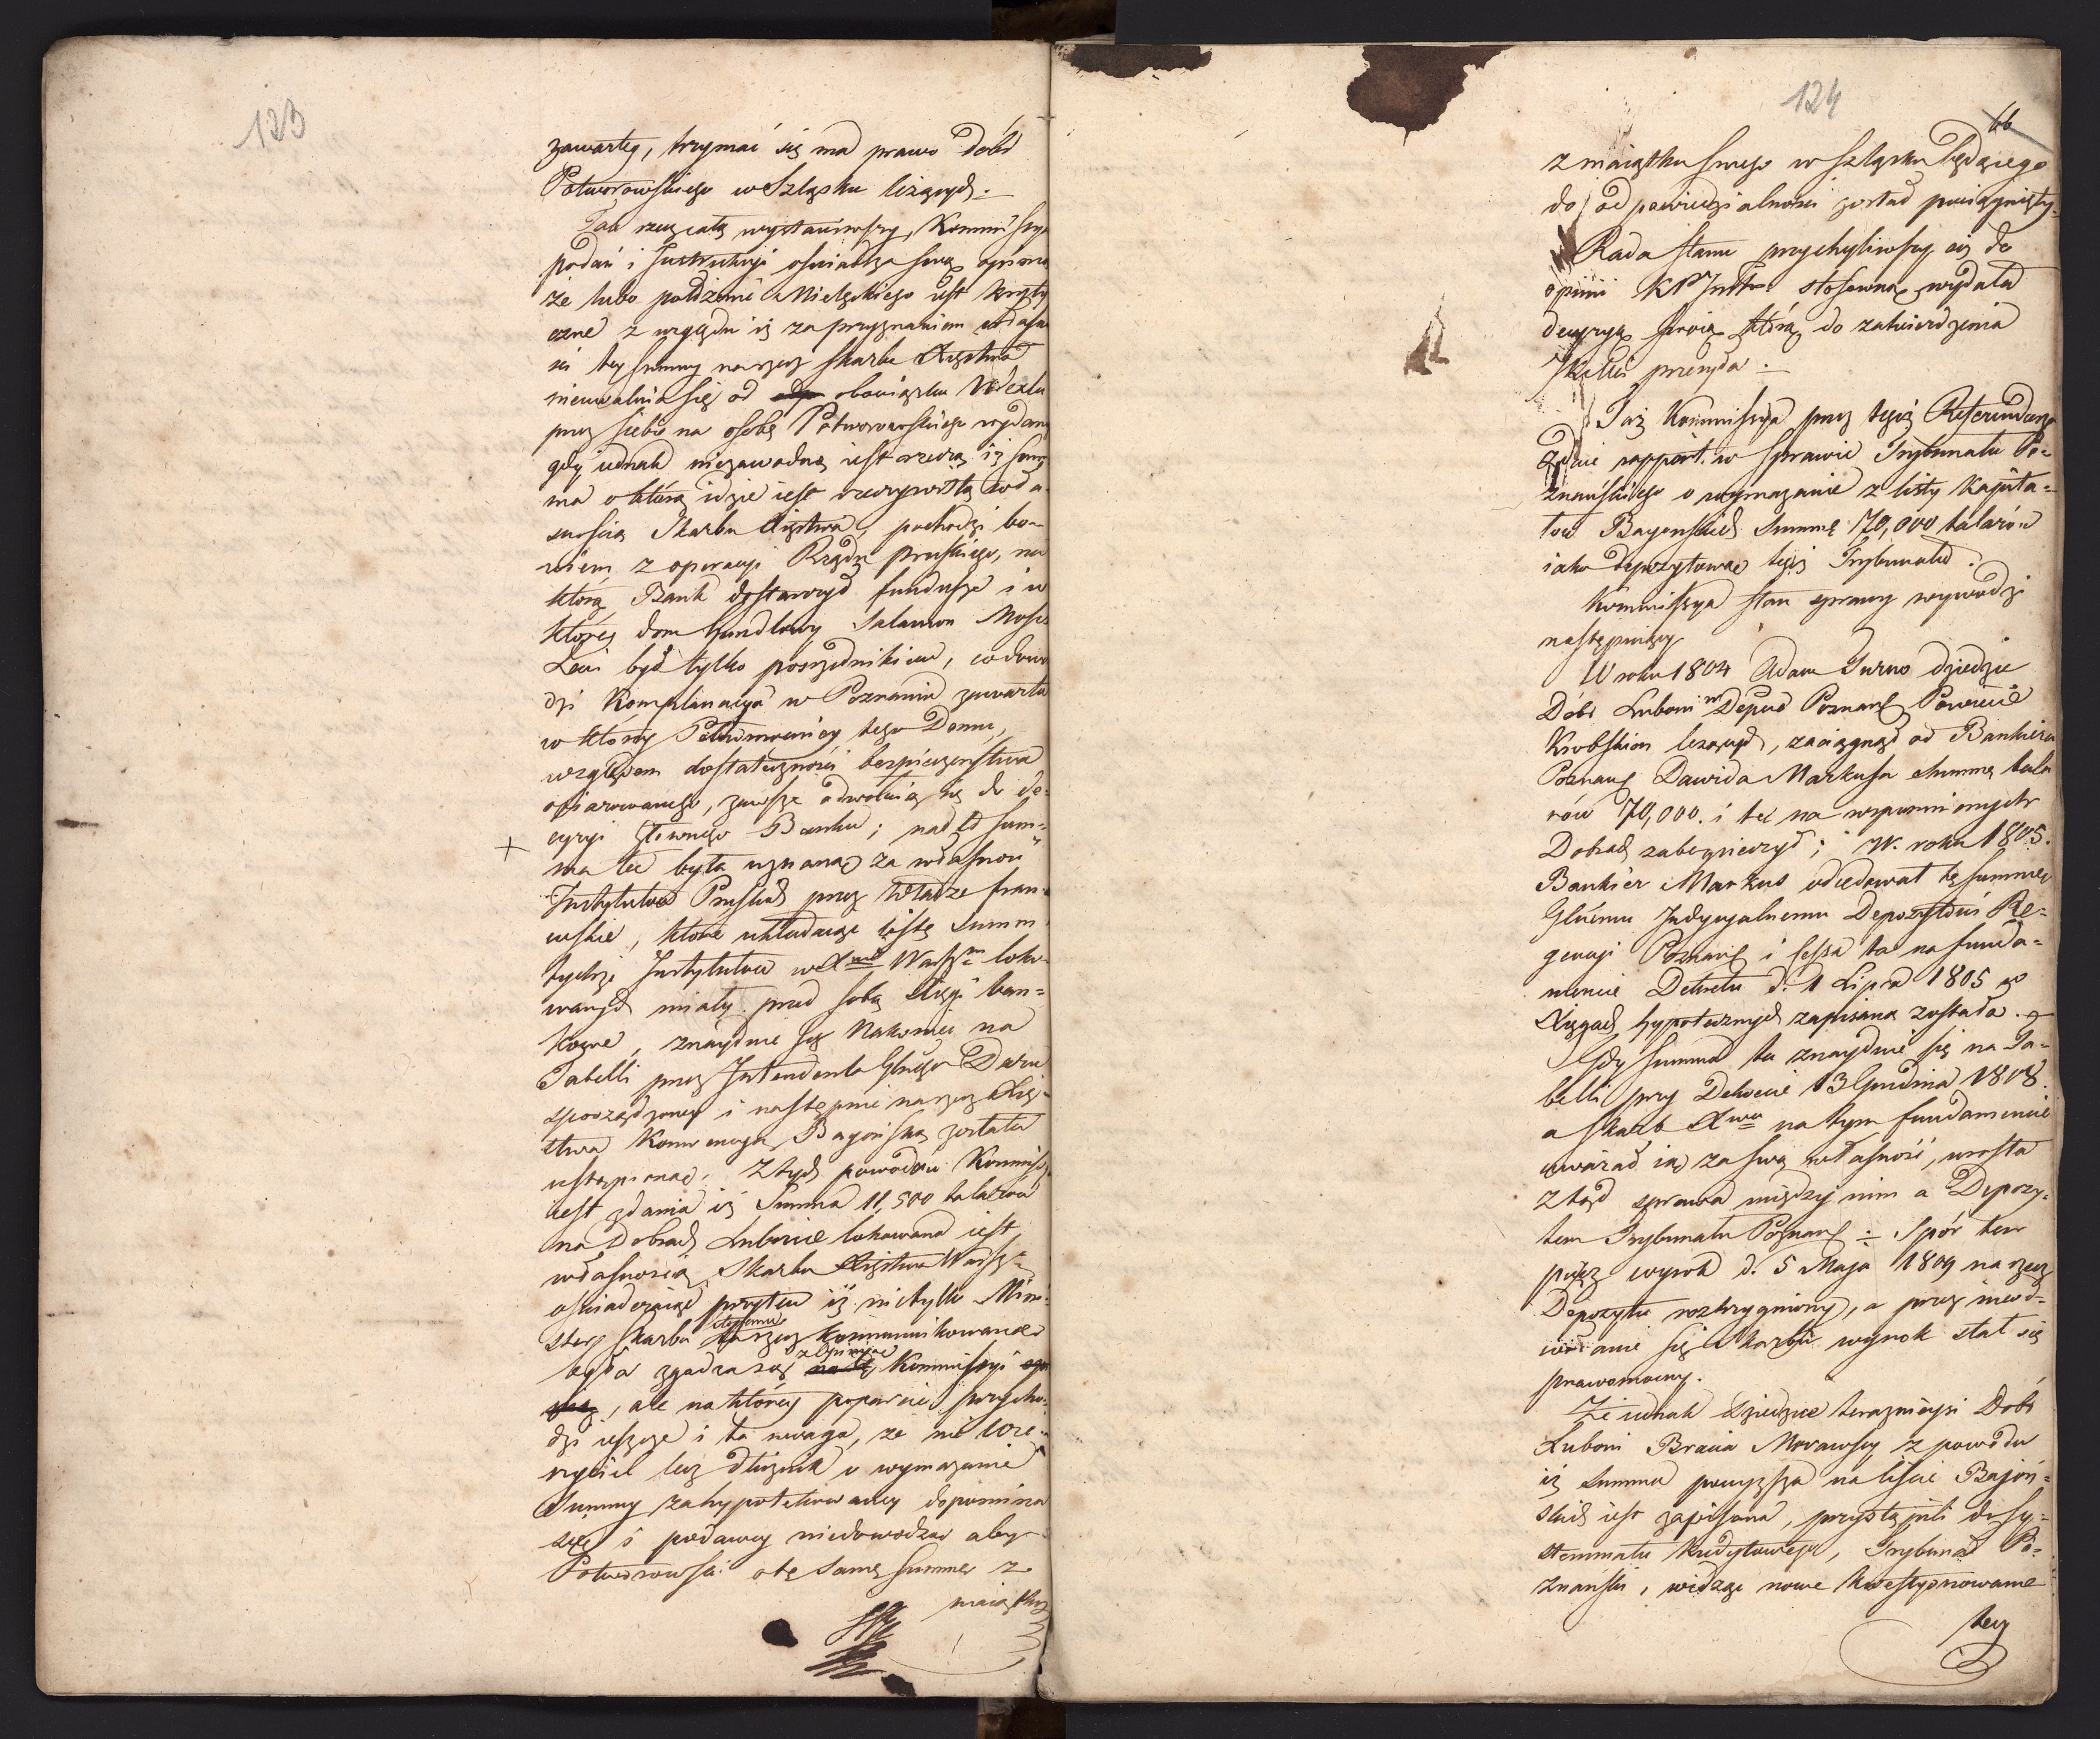 123
zawartey, trzymać się ma prawo dóbr
Potworowskiego w Szląsku leżących. –
Tak rzecz całą wystawiwszy, Kommissya
podań i Instrukcyi oświadcza swą opinię
że lubo położenie Mielęckiego iest kryty
czne z względu iż za przyznaniem własno
ści tey summy na rzecz Skarbu Xięstwa
nieuwalnia się od obowiązku Wexlu
przez siebie na osobę Potworowskiego wydany
gdy iednak niezawodną iest rzeczą iż sum
ma o którą idzie iest rzeczywistą wła-
snością Skarbu Xięstwa, pochodzi bo-
wiem z operacyi Rządu pruskiego, na
którą Bank dostarczył fundusze i w
którey dom handlowy Salamon Moses
Levi był tylko posrzednikiem, co dowo
dzi Komplanacya w Poznaniu zawarta
w którey Pełnomocnicy tego Domu,
względem dostateczności bezpieczeństwa
ofiarowanego, zawsze odwołuią się do de-
cyzyi Głównego Banku; nad to sum-
+ ma ta była uznana za własność
Instytutów Pruskich przez Władze fran-
cuskie, które układaiąc listę Summ
tychże Instytutów w Xwie Warszm loko-
wanych miały przed sobą Xięgi ban-
kowe, znayduie się Nakoniec na
Tabelli przez Intendenta Głnego Daru
sporządzoney i następnie na rzecz Xię-
stwa Konwencyą Bayońską została
ustąpiona: Z tych powodów Kommissya
iest zdania iż Summa 11,500 talarów
na Dobrach Lubonie lokowana iest
własnością Skarbu Xięstwa Warsz:
oświadczaiąc przytem iż nietylko Mini-
ster Skarbu któremu ta rzecz kommunikowana
była zgadza się z Opinią Kommissyi
, ale na którey poparcie przycho-
dzi ieszcze i ta uwaga, że nie wie-
rzyciel lecz dłużnik o wymazanie
Summy zahypotekowaney dopomina
się i podawcy niedowodzą aby
Potworowski o tę samę summę z
maiątku
124
66
z maiątku swego w Szląsku będącego
do odpowiedzialności został pociągnięty.
Rada Stanu przychyliwszy się do
opinii KP Instr. stosowną wydała
decyzyą swoią którą do zatwierdzenia
JKMci przesyła. –
Taż Kommissya przez tegoż Referendarza
zdaie rapport w sprawie Trybunału Po-
znańskiego o wymazanie z listy Kapita-
łów Bayońskich Summę 70,000 talarów
iako depozytową tegoż Trybunału.
Kommissya stan sprawy wywodzi
następuiący
W roku 1804 Adam Turno dziedzic
Dóbr Luboni w Depar Poznans Powiecie
Krobskim leżących, zaciągnął od Bankiera
Poznans Dawida Markusa Summę tala
rów 70,000. i tę na wspomnionych
Dobrach zabezpieczył; W. roku 1805.
Bankier Markus odcedował tę summę
Głównemu Judycyalnemu Depozytowi Re-
gencyi Poznans i cessya ta na funda-
mencie Dekretu d. 1 Lipca 1805 w
Xięgach hypotecznych zapisaną została.
Gdy summa ta znayduie się na Ta-
belli przy Dekrecie 13 Grudnia 1808.
a Skarb Xwa na tym fundamencie
uważał ią za swą własność, urosła
ztąd sprawa między nim a Depozy-
tem Trybunału Poznans –. Spór ten
przez wyrok d. 5 Maja 1809 na rzecz
Depozytu rozstrzygniony, a przez nieod-
wołanie się Skarbu wyrok stał się
prawomocny.
Że iednak dziedzice teraznieysi Dóbr
Luboni Bracia Morawscy z powodu
iż Summa powyższa na liście Bajoń-
skich iest zapisana, przystąpili do sy-
stemmatu kredytowego, Trybunał Po-
znański, widząc nowe kwestyonowanie
tey